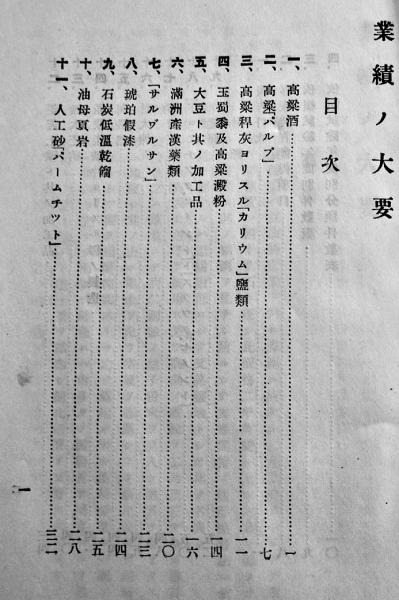 業績ノ大要
目次
一、高粱酒……一
二、高粱「パルプ」……七
三、高粱稈灰ヨリスル「カリウム」鹽類……一一
四、玉蜀黍及高粱澱粉……一四
五、大豆ト其ノ加工品……一六
六、滿洲產漢藥類……二〇
七、「サルヴルサン」……二三
八、琥珀假漆……二四
九、石炭低溫乾餾……二五
十、油母頁岩……二八
十一、人工砂「パームチツト」……三二
一